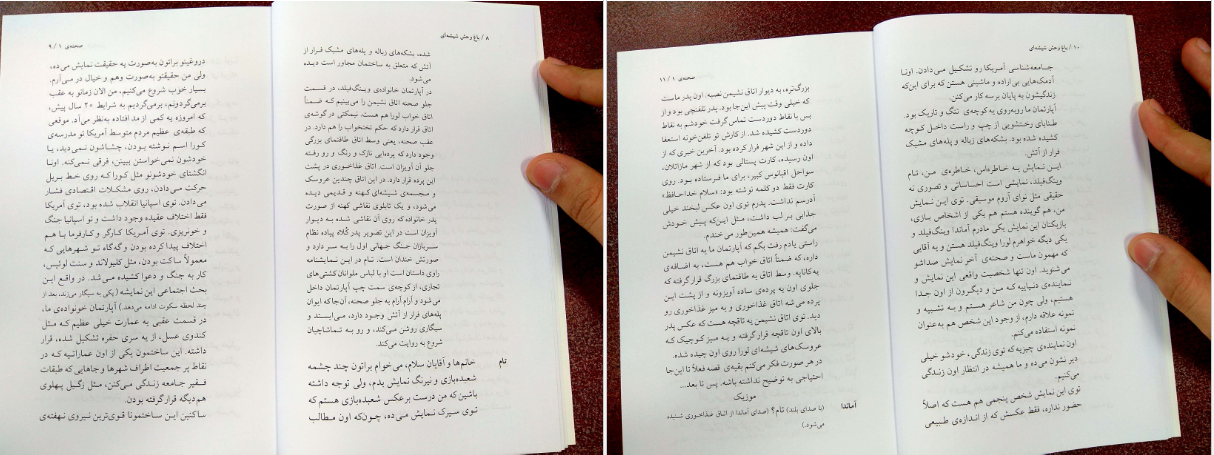 ۸ / باغ وحش شیشه‌ای
شده، بشکه‌های زباله و پله‌های مشبک فرار از
آتش که متعلق به ساختمان مجاور است دیده
می‌شود.
در آپارتمان خانواده‌ی وینگ‌فیلد، در قسمت
جلو صحنه اتاق نشیمن را می‌بینیم که ضمناً
اتاق خواب لورا هم هست. نیمکتی در گوشه‌ی
اتاق قرار دارد که حکم تختخواب را هم دارد. در
عقب صحنه، یعنی وسط اتاق طاقنمای بزرگی
وجود دارد که پرده‌ایی نازک و رنگ و رو رفته
جلو آن آویزان است. اتاق غذاخوری در پشت
این پرده قرار دارد. در این اتاق چندین عروسک
و مجسمه‌ی شیشه‌ای کهنه و قدیمی دیده
می‌شود، و یک تابلوی نقاشی کهنه از صورت
پدر خانواده که روی آن نقاشی شده به دیوار
آویزان است در این تصویر پدر کُلاه پیاده نظام
سربازان جنگ جهانی اول را به سر دارد و
صورتش خندان است. تام در این نمایشنامه
راوی داستان است او با لباس ملوانان کشتی‌های
تجاری، از کوچه‌ی سمت چپ آپارتمان داخل
می‌شود و آرام آرام به جلو صحنه، آن‌جا که ایوان
پله‌های فرار از آتش وجود دارد، می‌ایستد و
سیگاری روشن می‌کند، و رو به تماشاچیان
شروع به روایت می‌کند.
تام خانم‌ها و آقایان سلام، می‌خوام براتون چند چشمه
شعبده‌بازی و نیرنگ نمایش بدم، ولی توجه داشته
باشین که من درست برعکس شعبده‌بازی هستم که
توی سیرک نمایش می‌ده، چونکه اون مطالب
صحنه‌ی ۱ / ۹
دروغینو براتون به‌صورت یه حقیقت نمایش می‌ده،
ولی من حقیقتو به‌صورت وهم و خیال در می‌آرم.
بسیار خوب شروع می‌کنیم، من الان زمانو به عقب
برمی‌گردونم، برمی‌گردیم به شرایط ۲۰ سال پیش،
که امروزه یه کمی از مد افتاده به‌نظر می‌آد. موقعی
که طبقه‌ی عظیم مردم متوسط آمریکا تو مدرسه‌ی
کورا اسم نوشته بودن، چشاشون نمی‌دید، یا
خودشون نمی‌خواستن ببینن، فرقی نمی‌کنه. اونا
انگشتای خودشونو مثل کورا که روی خط بریل
حرکت می‌دادن، روی مشکلات اقتصادی فشار
می‌دادن. توی اسپانیا انقلاب شده بود، توی آمریکا
فقط اختلاف عقیده وجود داشت و تو اسپانیا جنگ
و خونریزی. توی آمریکا کارگر و کارفرما با هم
اختلاف پیدا کرده بودن و گه‌گاه تو شهرهایی که
معمولاً ساکت بودن، مثل کلیولاند و سنت لوئیس،
کار به جنگ و دعوا کشیده می‌شد. در واقع این
بحث اجتماعی این نمایشه (یکی به سیگار می‌زند، بعد از
چند لحظه سکوت ادامه می‌دهد.) آپارتمان خونواده‌ی ما،
در قسمت عقبی یه عمارت خیلی عظیم که مثل
کندوی عسل، از یه سری حفره تشکیل شده، قرار
داشته. این ساختمون یکی از اون عماراتیه که در
نقاط پر جمعیت اطراف شهرها و جاهایی که طبقات
فقیر جامعه زندگی می‌کنن، مثل زگیل پهلوی
هم‌دیگه قرار گرفته بودن.
ساکنین این ساختمونا قوی‌ترین نیروی نهفته‌ی
۱۰ / باغ وحش شیشه‌ای
جامعه‌شناسی آمریکا رو تشکیل می‌دادن. اونا
آدمک‌هایی بی‌اراده و ماشینی هستن که برای این‌که
زندگیشون به پایان برسه کار می‌کنن.
آپارتمان ما روبه‌روی یه کوچه‌ی تنگ و تاریک بود.
طنابای رختشویی از چپ و راست داخل کوچه
کشیده شده بود. بشکه‌های زباله و پله‌های مشبک
فرار از آتش.
این نمایش یه خاطره‌اس، خاطره‌ی من، تام
وینگ‌فیلد. نمایشی است احساساتی و تصوری نه
حقیقی مثل نوای آروم موسیقی. توی این نمایش
من، هم گوینده هستم هم یکی از اشخاص بازی،
بازیکنان این نمایش یکی مادرم آماندا وینگ‌فیلد و
یکی دیگه خواهرم لورا وینگ‌فیلد هستن و یه آقایی
که مهمون ماست و صحنه‌ی آخر نمایش صداشو
می‌شنوید. اون تنها شخصیت واقعی این نمایش و
نماینده‌ی دنیاییه که من و دیگرون از اون جدا
هستیم، ولی چون من شاعر هستم و به تشبیه و
نمونه علاقه دارم، از وجود این شخص هم به‌عنوان
نمونه استفاده می‌کنم.
اون نماینده‌ی چیزیه که توی زندگی، خودشو خیلی
دیر نشون می‌ده و ما همیشه در انتظار اون زندگی
می‌کنیم.
توی این نمایش شخص پنجمی هم هست که اصلاً
حضور نداره، فقط عکسش که از اندازه‌ی طبیعی
صحنه‌ی ۱ / ۱۱
بزرگ‌تره، به دیوار اتاق نشیمن نصبه. اون پدر ماست
که خیلی وقت پیش این‌جا بود. پدر تلفنچی بود و از
بس با نقاط دوردست تماس گرفت خودشم به نقاط
دوردست کشیده شد. از کارش تو تلفن‌خونه استعفا
داده و از این شهر فرار کرده بود. آخرین خبری که از
اون رسیده، کارت پستالی بود که از شهر مازاتلان،
سواحل اقیانوس کبیر، برای ما فرستاده بود. روی
کارت فقط دو کلمه نوشته بود: «سلام خداحافظ»
آدرسم نداشت. پدرم توی اون عکس لبخند خیلی
جذابی بر لب داشت، مثل این‌که پیش خودش
می‌گفت: همیشه همین‌طور می‌خندم.
راستی یادم رفت بگم که آپارتمان ما یه اتاق نشیمن
داره، که ضمناً اتاق خواب هم هست، به اضافه‌ی
یه کاناپه. وسط اتاق یه طاقنمای بزرگ قرار گرفته که
جلوی اون یه پرده‌ی ساده آویزونه و از پشت این
پرده می‌شه اتاق غذاخوری و یه میز غذاخوری رو
دید. توی اتاق نشیمن یه تاقچه هست که عکس پدر
بالای اون تاقچه قرار گرفته و یه میز کوچیک که
عروسک‌های شیشه‌ای لورا روی اون چیده شده.
در هر صورت فکر می‌کنم بقیه‌ی قصه فعلاً تا این‌جا
احتیاجی به توضیح نداشته باشه. پس تا بعد...
موزیک
آماندا (با صدای بلند) تام؟ (صدای آماندا از اتاق غذاخوری شنیده
می‌شود.)